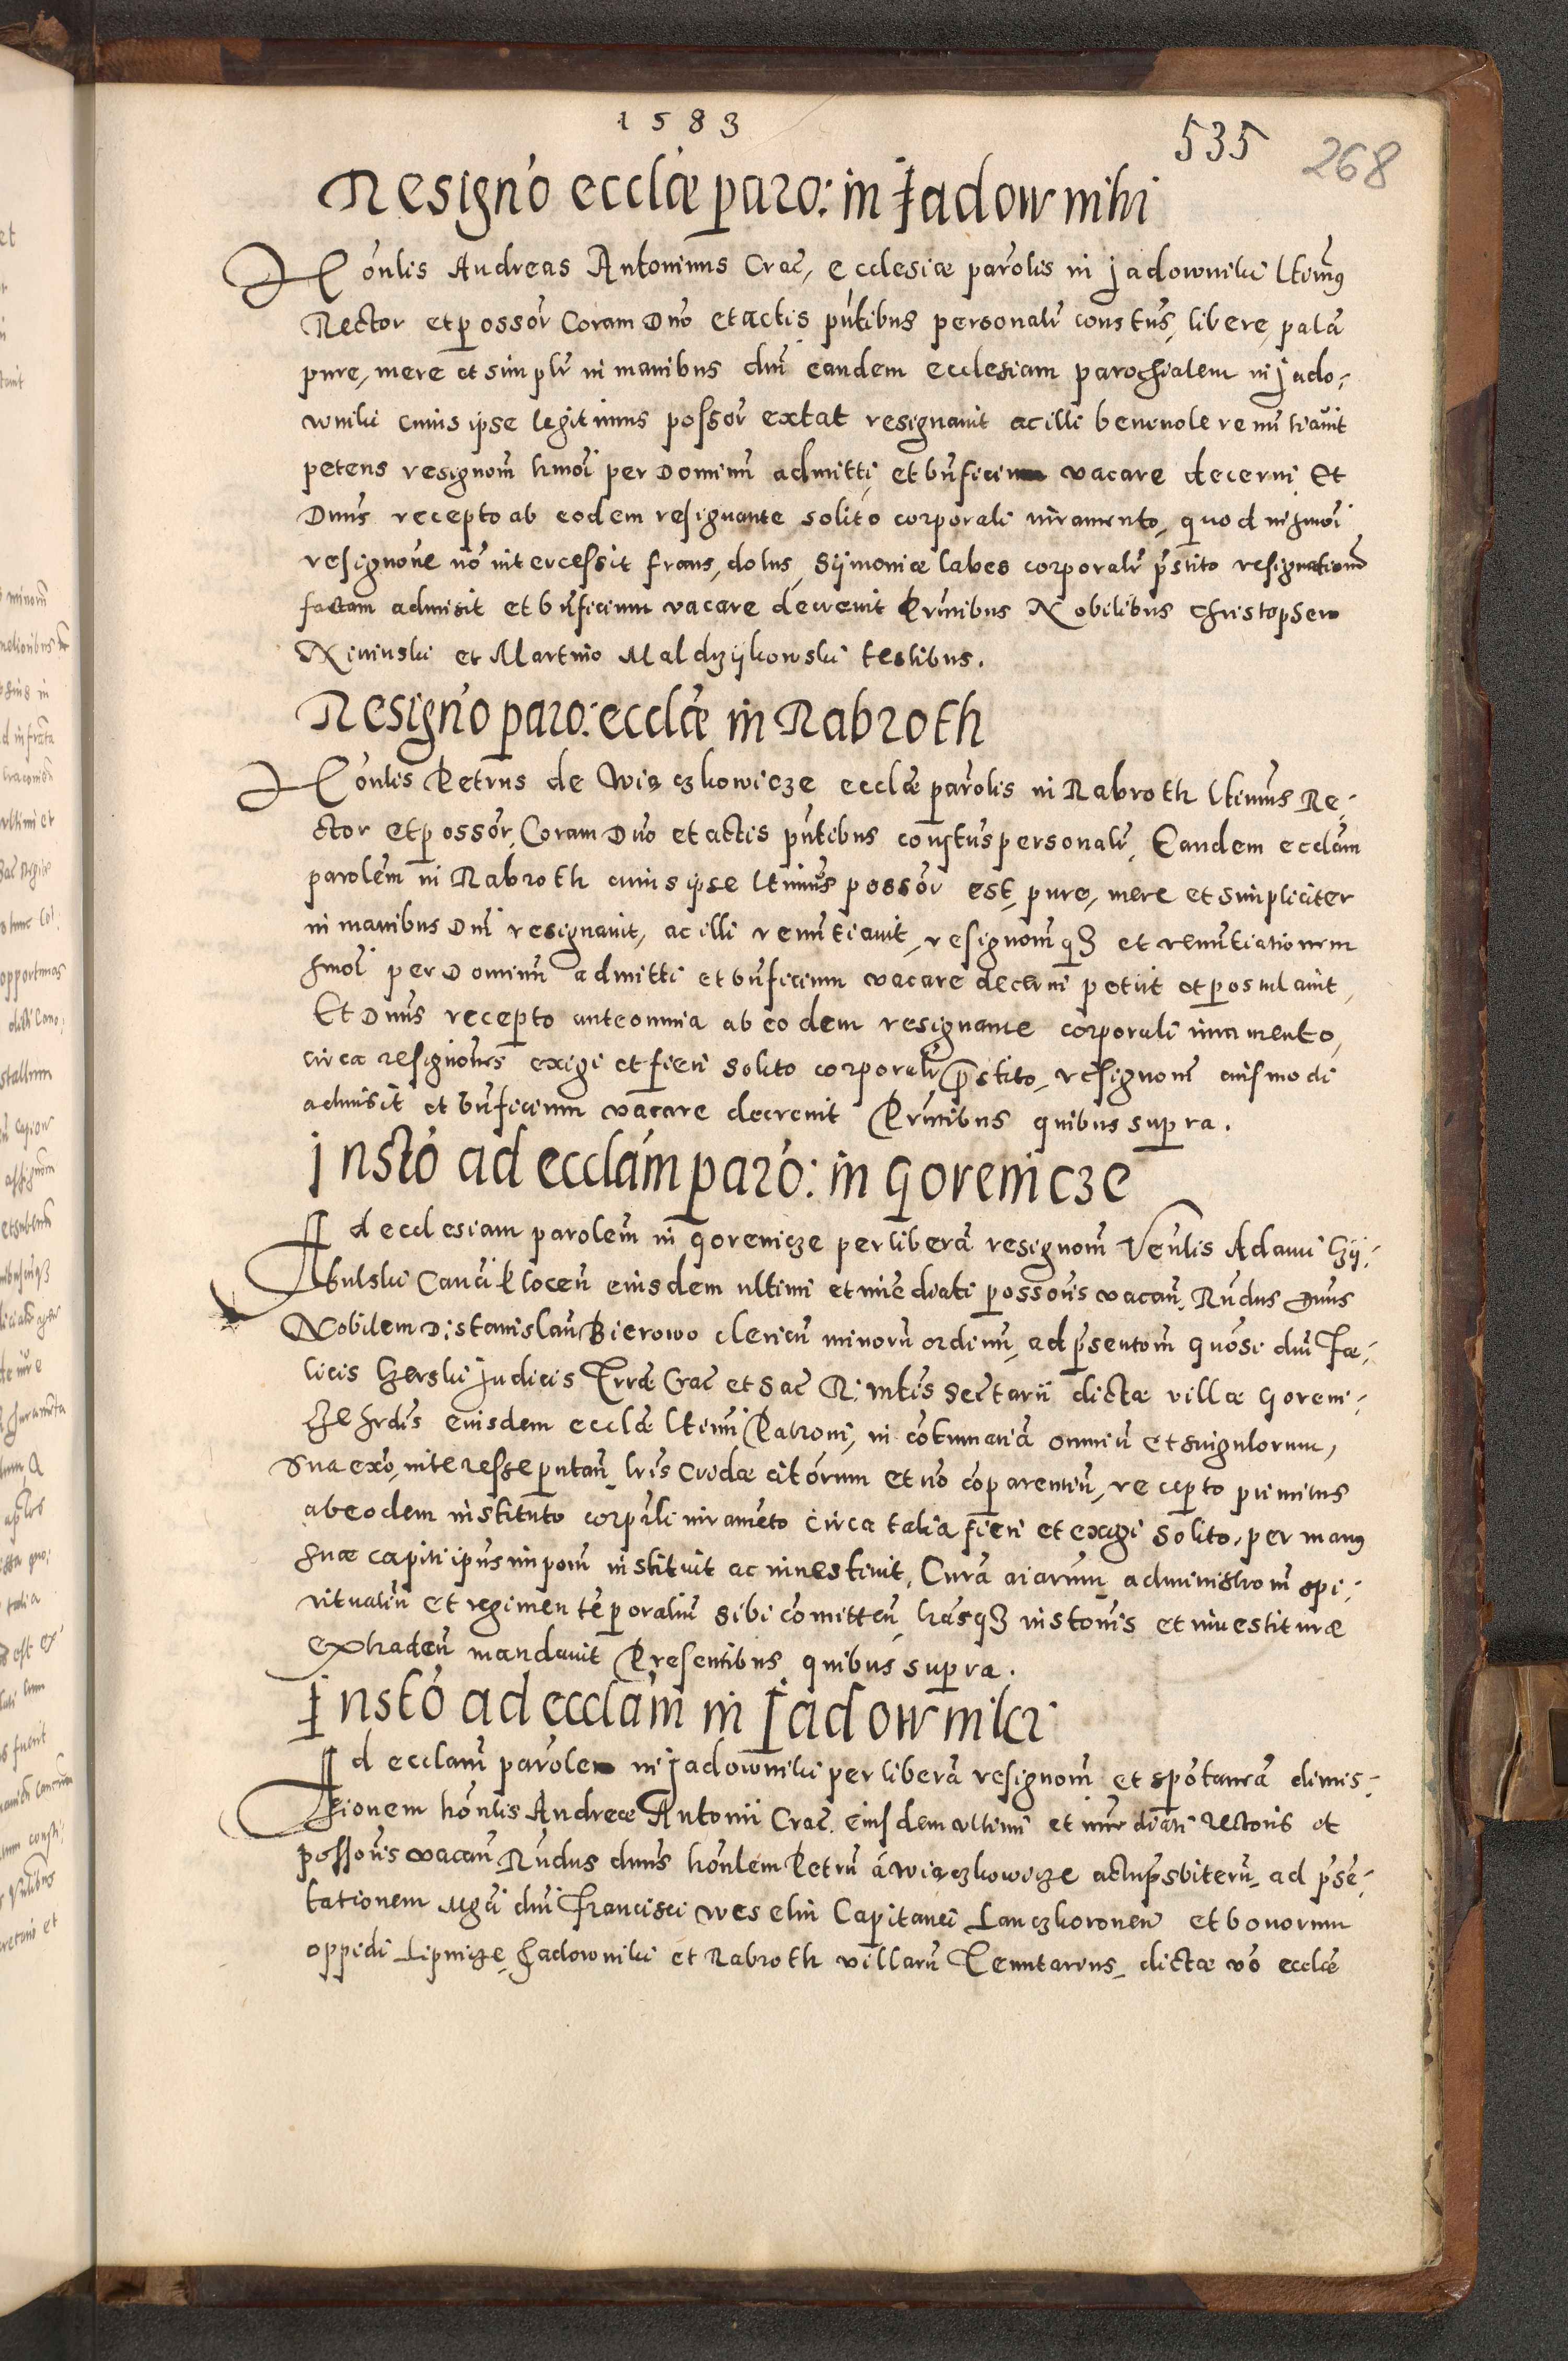 1583
535 268
Resigno ecclae paro: in Jadowniki
Honlis Andreas Antoninus Crac, ecclesiae parolis in Jadowniki ltimus
Rector et possor Coram Dno et actis pntibus personalr constus, libere, pala
pure, mere et simplr in manibus dni eandem ecclesiam parochialem in Jado-
wniki cuius ipse legitimus possor extat resignavit ac illi benevole renuntiavit
petens resignom hmoi per Dominum admitti, et bnficium vacare decerni. Et
Dnus recepto ab eodem resignante solito corporali iuramento, quod in hmoi
resignone no intercessit fraus, dolus, Sijmoniae labes corporalr pstito resignationem
factam admisit et bnficium vacare decrevit Pruntibus Nobilibus Christophero
Nivinski et Martino Maldzijkowski testibus.
Resigno paro: ecclae in Rabroth
Honlis Petrus de Wiączkowicze ecclae parolis in Rabroth ltimus Re-
ctor et possor, Coram Dno et actis pntibus constus personalr, Eandem ecclam
parolem in Rabroth cuius ipse ltimus possor est, pure, mere et simpliciter
in manibus Dni resignavit, ac illi renuntiavit, resignomq3 et renuntiationem
hmoi per Dominum admitti et bnficium vacare decerni petiit et postulavit,
Et Dnus recepto ante omnia ab eodem resignante corporali iuramento,
circa resignones exigi et fieri solito corporalr pstito, resignom eiusmodi
admisit et bnficium vacare decrevit Pruntibus quibus supra.
Insto ad ecclam paro: in Gorenicze
Ad ecclesiam parolem in Gorenicze per libera resignom Venlis Adami Zij-
bulski Canci Plocen eiusdem ultimi et immediati possoris vacan, Rndus Dnus
Nobilem D: Stanislau Bierowo clericu minoru ordinu, ad psentom Gnosi dni Fae-
licis Czerski Judicis Terrae Crac et Sac R. Mtis Sectarii dictae villae Goreni-
cze hrdis eiusdem ecclae ltimi Patroni, in cotumatia omniu et singulorum,
sua exo, interesse putan, lris Cridae citorum et no coparentiu, recepto primitus
ab eodem instituto corpali iurameto circa talia fieri et exigi solito, per manus
suae capiti ipsius impom instituit ac investivit, Cura aiarum administrom spi-
ritualiu et regimen teporaliu sibi comitten, lrasq3 instonis et investiturae
extraden mandavit Presentibus quibus supra.
Insto ad ecclam in Jadowniki
Ad ecclam parolem in Jadowniki per libera resignom et spotanea dimis-
sionem honlis Andreae Antonii Crac. eiusdem ultimi et immediati rectoris et
possoris vacan Rndus dnus honlem Petru a Wiączkowicze actu psbiteru, ad pse-
tationem Mgci dni Francisci Weselini Capitanei Lanczkoronen et bonorum
oppidi Lipnicze, Jadowniki et Rabroth villaru Tenutarius, dictae vo ecclae